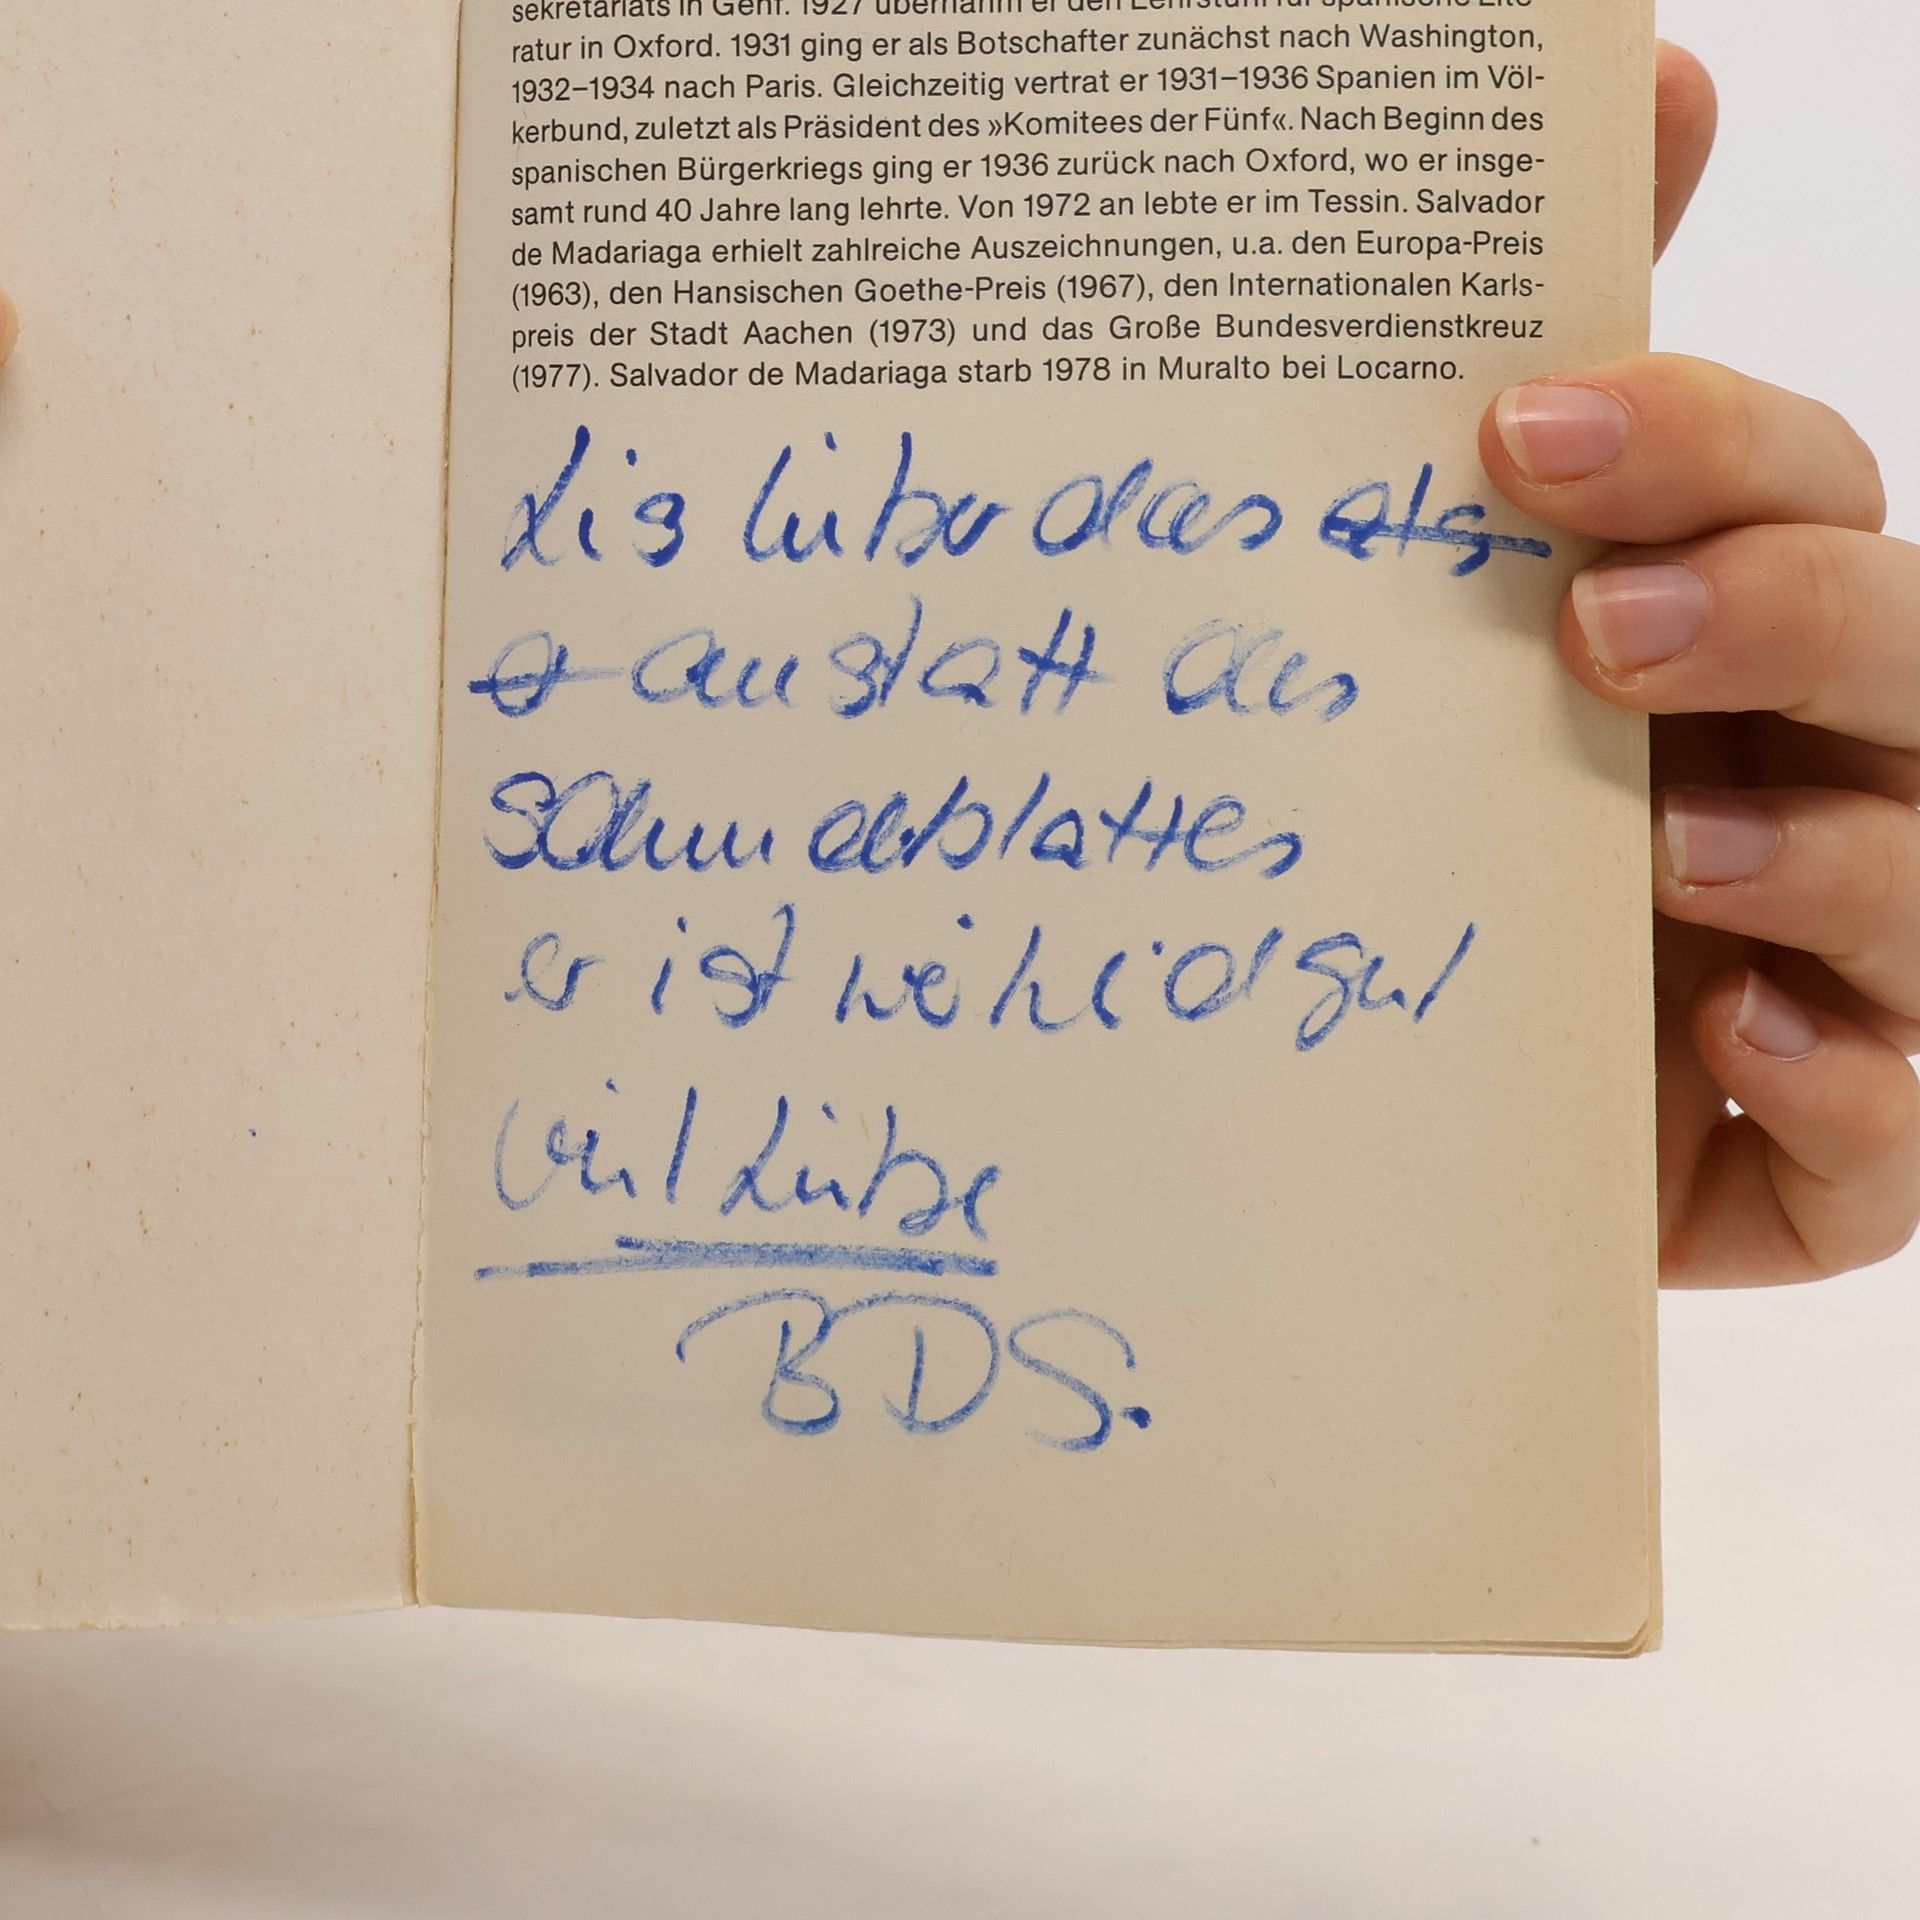 sekretariats in Genf. 1927 übernahm er den Lehrstuhl für spanische Lite-
ratur in Oxford. 1931 ging er als Botschafter zunächst nach Washington,
1932–1934 nach Paris. Gleichzeitig vertrat er 1931–1936 Spanien im Völ-
kerbund, zuletzt als Präsident des »Komitees der Fünf«. Nach Beginn des
spanischen Bürgerkriegs ging er 1936 zurück nach Oxford, wo er insge-
samt rund 40 Jahre lang lehrte. Von 1972 an lebte er im Tessin. Salvador
de Madariaga erhielt zahlreiche Auszeichnungen, u.a. den Europa-Preis
(1963), den Hansischen Goethe-Preis (1967), den Internationalen Karls-
preis der Stadt Aachen (1973) und das Große Bundesverdienstkreuz
(1977). Salvador de Madariaga starb 1978 in Muralto bei Locarno.
Lis lieber das als
anstatt des
er ist gut
viel Liebe
BDS.